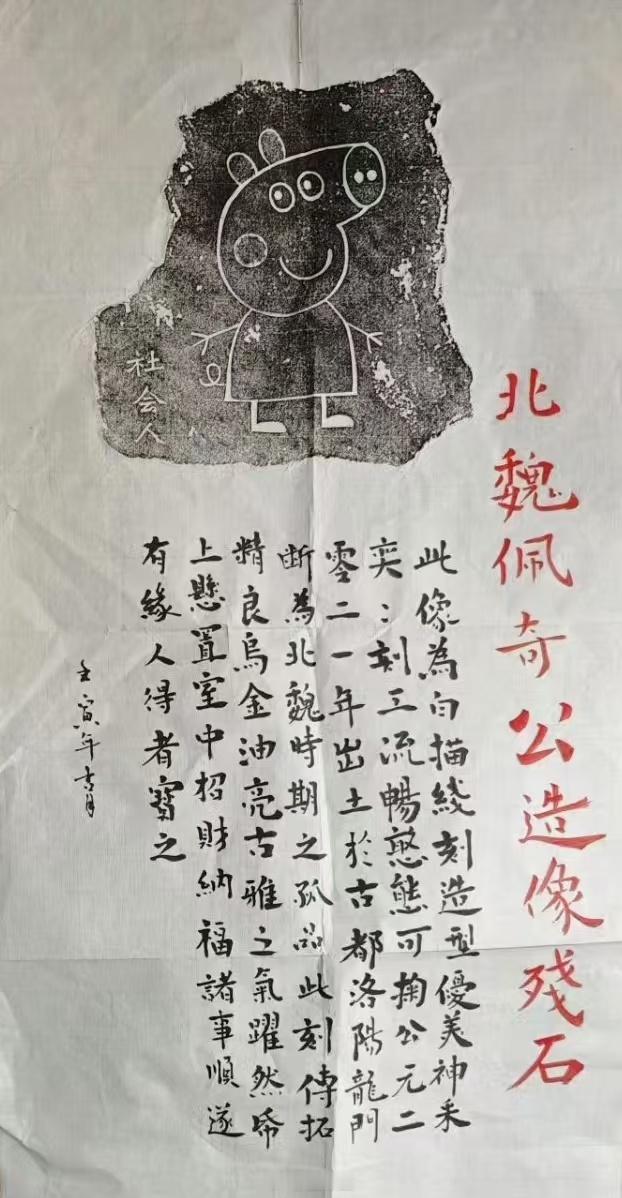 北魏佩奇公造像殘石
社会人
此像為白描綫刻造型優美神采
奕：刻工流暢憨態可掬公元二
零二一年出土於古都洛陽龍門
断為北魏時期之孤品此刻傳拓
精良烏金油亮古雅之氣躍然帋
上懸置室中招財納福諸事順遂
有緣人得者寶之
壬寅年吉月